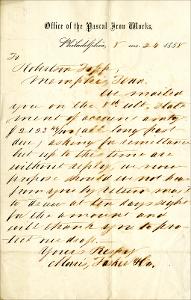 Office of the Pascal Iron Works,
Philadelphia, 8 mo. 24 1858
To
Robertson Topp,
Memphis, Tenn.
We mailed
you on the 8th ult. state
ment of account amtg
$2123 (all long past
due) asking for remittance
but up to this time are
without reply we now
propose should we not hear
from you by return mail
to draw at ten days sight
for the amount and
will thank you to pro
tect our draft
Yours Respy
Morris, Tasker & Co.